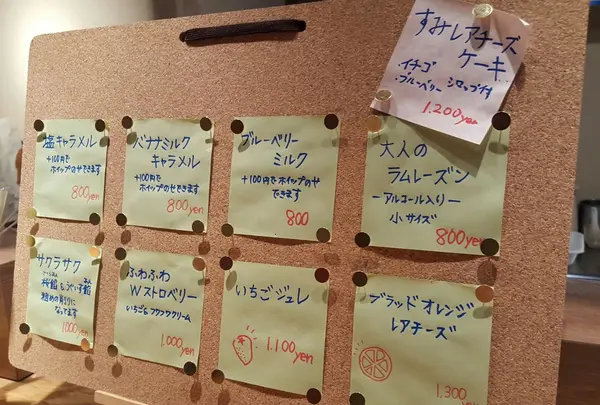 すみレアチーズ
ケーキ
・イチゴ
・ブルーベリー シロップ付
1.200yen
塩キャラメル
+100円で
ホイップのせできます
800yen
バナナミルク
キャラメル
+100円で
ホイップのせできます
800yen
ブルーベリー
ミルク
+100円でホイップのせ
できます
800
大人の
ラムレーズン
ーアルコール入りー
小サイズ
800yen
サクラサク
桜餡&うぐいす餡
粗めの削りに
なってます
1000yen
ふわふわ
Wストロベリー
いちご&フワフワクリーム
1.000yen
いちごジュレ
1.100yen
ブラッドオレンジ
レアチーズ
1.300